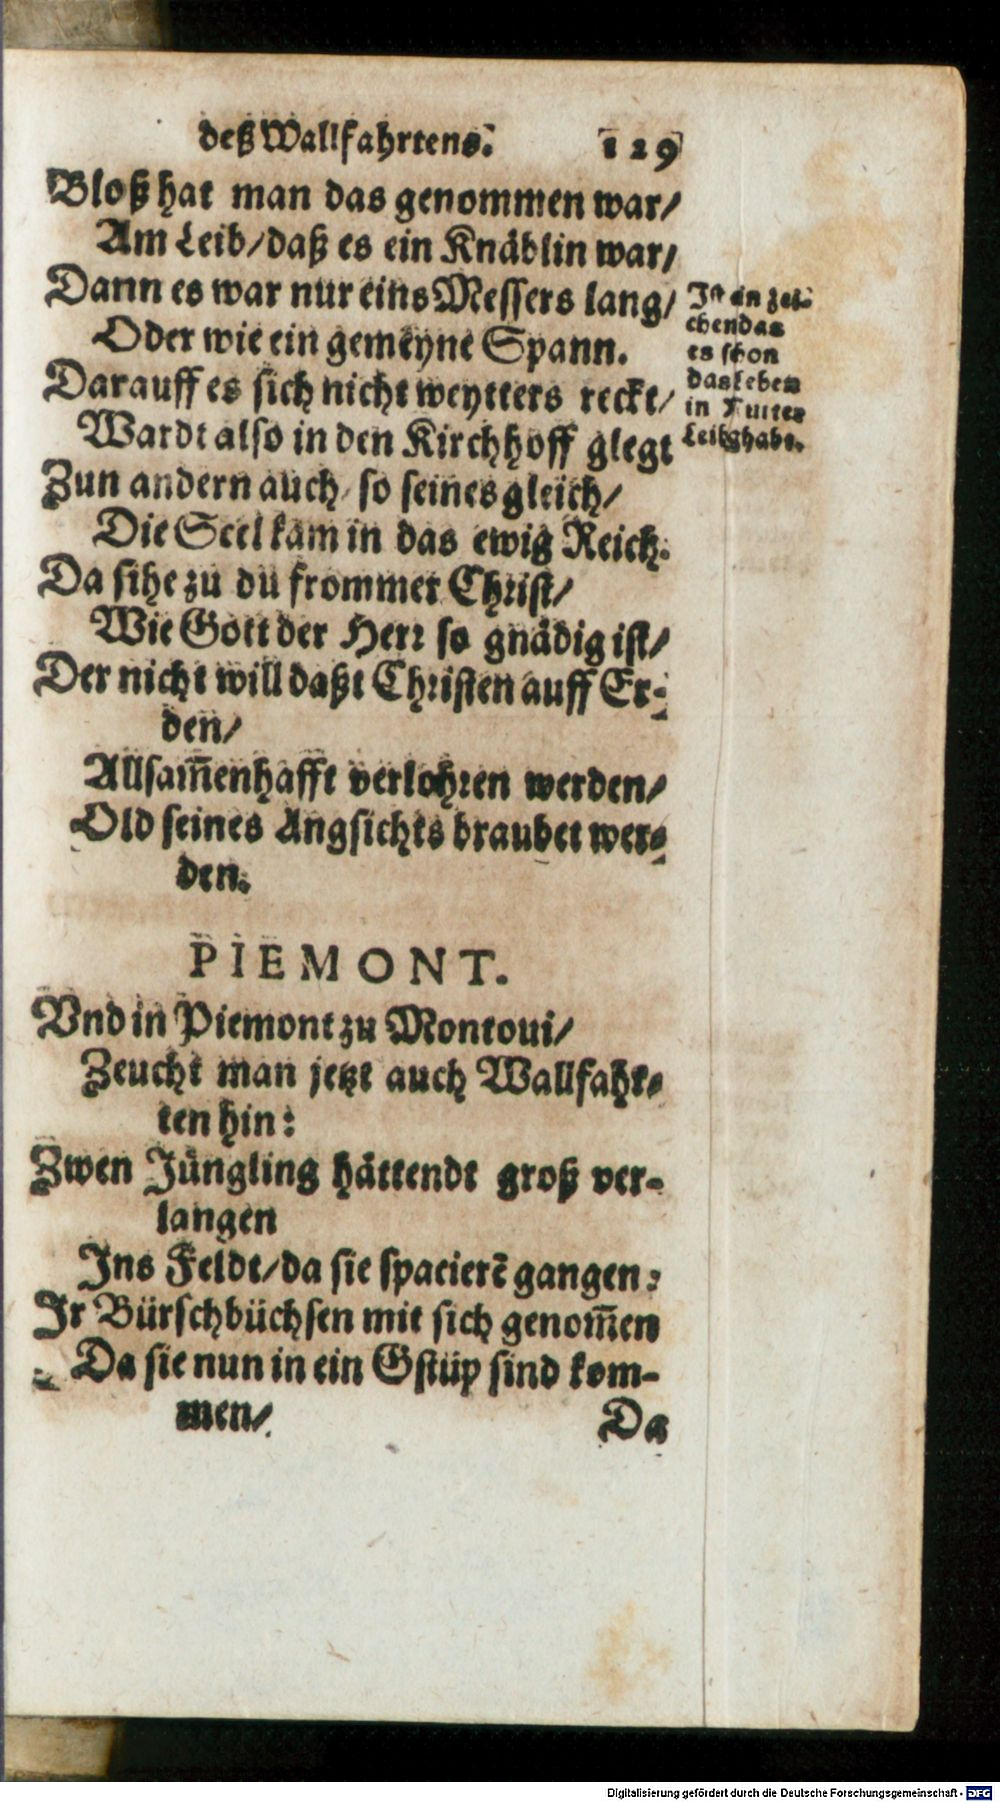 deß Wallfahrtens. 129
Bloß hat man das genommen war/
Am Leib/daß es ein Knäblin war/
Dann es war nur eins Messers lang/
Oder wie ein gemeyne Spann.
Darauff es sich nicht weytters reckt/
Wardt also in den Kirchhoff glegt
Zun andern auch/ so seines gleich/
Die Seel kam in das ewig Reich.
Da sihe zu du frommer Christ/
Wie Gott der Herr so gnädig ist/
Der nicht will daßt Christen auff Er-
den/
Allsam̄enhafft verlohren werden/
Old seines Angsichts braubet wer-
den.
Ist ein zei-
chen das
es schon
das leben
in Mutter
Leib ghabt.
PIEMONT.
Vnd in Piemont zu Montoui/
Zeucht man jetzt auch Wallfahr-
ten hin:
Zwen Jüngling hättendt groß ver-
langen
Ins Feldt/da sie spacierē gangen:
Ir Bürschbüchsen mit sich genom̄en
Da sie nun in ein Gstüp sind kom-
men/ Da
Digitalisierung gefördert durch die Deutsche Forschungsgemeinschaft - DFG